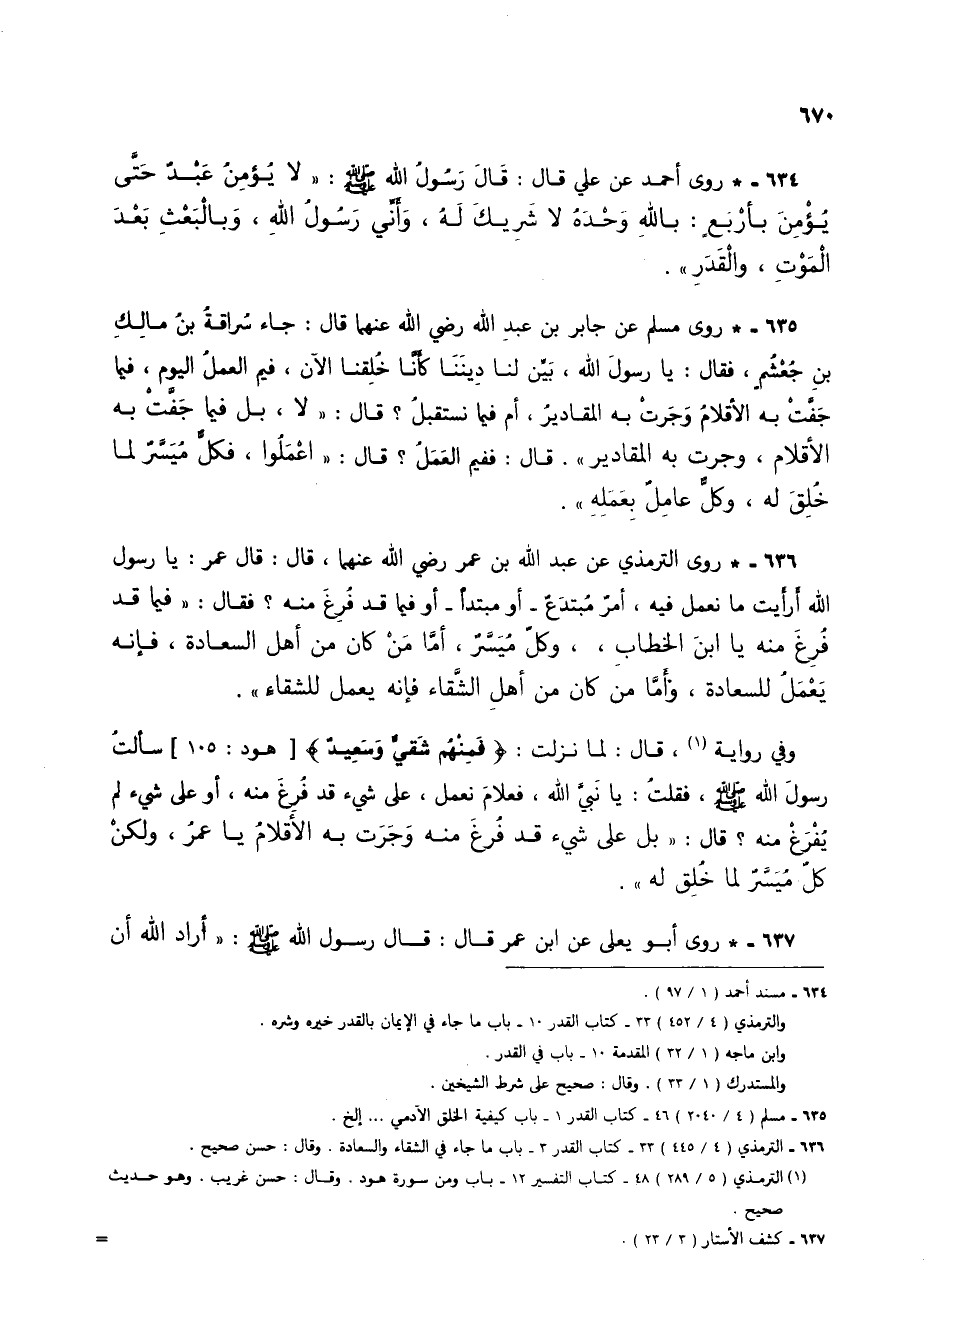 ٦٧٠
٦٣٤ - * روى أحمد عن علي قال : قَالَ رَسُولُ الله ﷺ : « لا يُؤمِنُ عَبْدٌ حَتَّى
يُؤْمِنَ بأرْبَعٍ : باللهِ وَحْدَهُ لا شَرِيكَ لَهُ ، وَأنِّي رَسُولُ اللهِ ، وَبالْبَعْثِ بَعْدَ
الْمَوْتِ ، والْقَدَرِ » .
٦٣٥ - * روى مسلم عن جابر بن عبد الله رضي الله عنهما قال : جاء سُراقةُ بنُ مالِكِ
بنِ جُعْشُمٍ ، فقال : يا رسولَ الله ، بَيِّن لنا دِينَنَا كأنَّا خُلِقنا الآن ، فيم العملُ اليوم ، فيما
جَفَّتْ به الأقلامُ وَجَرتْ به المقاديرُ ، أم فيما نستقبلُ ؟ قال : « لا ، بل فيما جَفَّتْ به
الأقلام ، وجرت به المقادير » . قال : ففيم العَمَلُ ؟ قال : « اعْمَلُوا ، فكلٌّ مُيَسَّرٌ لما
خُلِقَ له ، وكلٌّ عاملٌ بِعَمَلِهِ » .
٦٣٦ - * روى الترمذي عن عبد الله بن عمر رضي الله عنهما ، قال : قال عمر : يا رسول
الله أرأيت ما نعمل فيه ، أمرٌ مُبتدَعٌ - أو مبتدأ - أو فيما قد فُرِغَ منه ؟ فقال : « فيما قد
فُرِغَ منه يا ابنَ الخطاب ، ، وكلٌّ مُيَسَّرٌ ، أمَّا مَنْ كان من أهل السعادة ، فإنه
يَعْمَلُ للسعادة ، وأمَّا من كان من أهل الشَّقاء فإنه يعمل للشقاء » .
وفي رواية (١) ، قال : لما نزلت : ﴿ فَمِنْهُم شَقيٌّ وَسَعِيدٌ ﴾ [ هود : ١٠٥ ] سألتُ
رسولَ الله ﷺ ، فقلتُ : يا نَبيَّ الله ، فعلامَ نعمل ، على شيء قد فُرِغَ منه ، أو على شيء لم
يُفْرَغْ منه ؟ قال : « بل على شيء قد فُرِغَ منه وَجَرَت به الأقلامُ يا عمرُ ، ولكنْ
كلٌّ مُيَسَّرٌ لما خُلِق له » .
٦٣٧ - * روى أبو يعلى عن ابن عمر قال : قال رسول الله ﷺ : « أراد الله أن
٦٣٤ - مسند أحمد ( ١ / ٩٧ ) .
والترمذي ( ٤ / ٤٥٢ ) ٣٣ - كتاب القدر ١٠ - باب ما جاء في الإيمان بالقدر خيره وشره .
وابن ماجه ( ١ / ٣٢ ) المقدمة ١٠ - باب في القدر .
والمستدرك ( ١ / ٣٣ ) . وقال : صحيح على شرط الشيخين .
٦٣٥ - مسلم ( ٤ / ٢٠٤٠ ) ٤٦ - كتاب القدر ١ - باب كيفية الخلق الآدمي ... إلخ .
٦٣٦ - الترمذي ( ٤ / ٤٤٥ ) ٣٣ - كتاب القدر ٣ - باب ما جاء في الشقاء والسعادة . وقال : حسن صحيح .
(١) الترمذي ( ٥ / ٢٨٩ ) ٤٨ - كتاب التفسير ١٢ - باب ومن سورة هود . وقال : حسن غريب . وهو حديث
صحيح .
٦٣٧ - كشف الأستار ( ٣ / ٢٣ ) . =